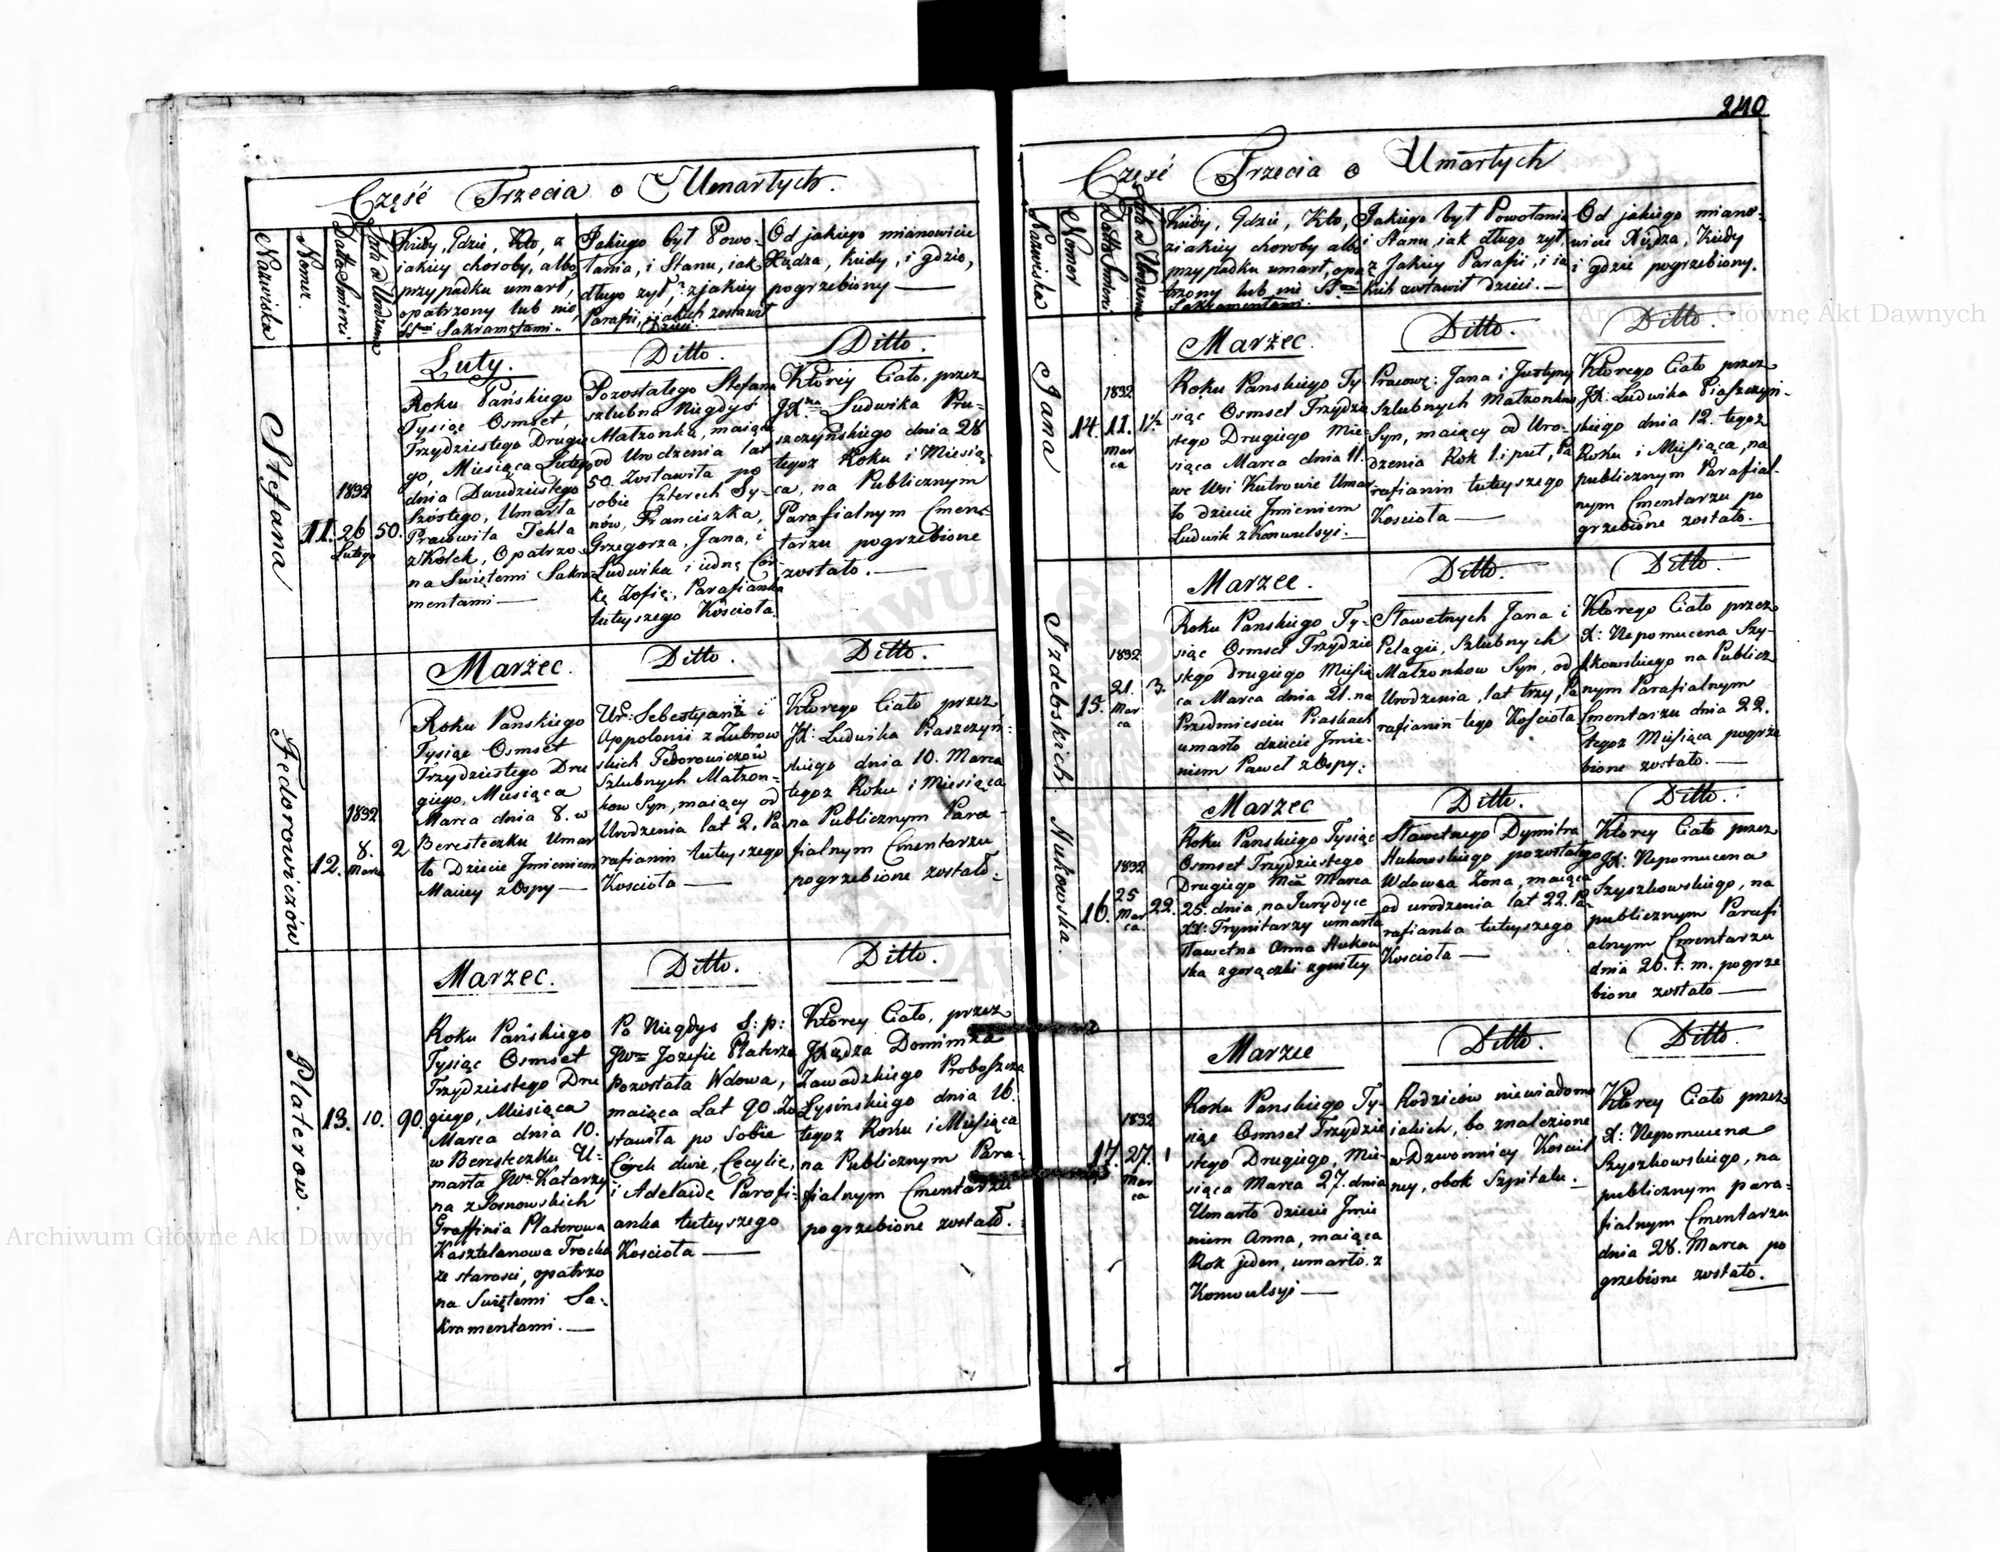 240
Część Trzecia o Umarłych.
Nazwiska
Numer.
Datta Smierci
Lata od Urodzenia
Kiedy, Gdzie, Kto, z
iakiey choroby, albo
przypadku umarł,
opatrzony lub nie,
SSmi Sakramętami.
Jakiego był Powo-
łania, i Stanu, iak
długo żył, z jakiey
Parafii, i iakich zostawił
Dzieci.
Od jakiego mianowicie
Xiędza, kiedy, i gdzie,
pogrzebiony
Stefana
11.
1832
26
Lutego
50.
Luty.
Roku Pańskiego
Tysiąc Osmset,
Trzydziestego Drugie
go, Miesiąca Lutego
dnia Dwudziestego
Szóstego, Umarła
Pracowita Tekla
z Kolek, Opatrzo
na Swiętemi Sakra
mentami
Ditto.
Pozostałego Stefana
szlubna Niegdyś
Małzonka, maiąca
od Urodzenia lat
50. Zostawiła po
sobie Czterech Sy-
nów, Franciszka,
Grzegorza, Jana, i
Ludwika i iedną Cór
kę Zofię, Parafianka
tuteyszego Kościoła
Ditto.
Którey Ciało, przez
JXna Ludwika Pia-
szczyńskiego dnia 28
tegoż Roku i Miesią
ca, na Publicznym
Parafialnym Cmen-
tarzu pogrzebione
zostało.
Fedorowiczów
12.
1832
8.
Marca
2
Marzec.
Roku Pańskiego
Tysiąc Osmset
Trzydziestego Dru
giego, Miesiąca
Marca dnia 8. w
Beresteczku Umar
ło Dziecie Jmieniem
Maciey z Ospy
Ditto.
Ur: Sebestyana i
Appolonii z Zubrow
skich Fedorowiczów
Szlubnych Małzon-
kow Syn, maiący od
Urodzenia lat 2. Pa
rafianin tuteyszego
Kosciola
Ditto.
Którego Ciało przez
JX: Ludwika Piaszczyń-
skiego dnia 10. Marca
tegoz Roku i Miesiąca
na Publicznym Para-
fialnym Cmentarzu
pogrzebione zostało.
Platerów.
13.
10.
90.
Marzec.
Roku Pańskiego
Tysiąc Osmset
Trzydziestego Dru
giego, Miesiąca
Marca dnia 10.
w Beresteczku U-
marła JWa Katarzy
na z Sosnowskich
Graffinia Platerowa
Kasztelanowa Trocka
ze starosci, opatrzo
na Swiętemi Sa-
kramentami.
Ditto.
Po Niegdys S: p:
JWm Jozefie Platerze
Pozostała Wdowa,
maiąca Lat 90. Zo
stawiła po sobie
Córek dwie, Cecylię,
i Adelaidę Parafi-
anka tuteyszego
Kosciola
Ditto.
Którey Ciało, przez
JXiędza Dominika
Zawadzkiego Proboszcza
Łysińskiego dnia 16.
tegoz Roku i Miesiąca
na Publicznym Para-
fialnym Cmentarzu
pogrzebione zostało.
Część Trzecia o Umarłych
Nazwiska
Nomer
Datta Smierci
Lata od Urodzenia
Kiedy, Gdzie, Kto,
z iakiey choroby albo
przypadku umarł, opa
trzony lub nie SSmi
Sakramentami.
Jakiego był Powołania
i Stanu iak długo żył,
z Jakiey Parafii, i ia
kich zostawił dzieci.
Od jakiego miano-
wicie Xiędza, Kiedy
i gdzie pogrzebiony.
Jana
14.
1832
11.
Mar
ca
1½
Marzec.
Roku Panskiego Ty-
siąc Osmset Trzydzie
stego Drugiego Mie-
siąca Marca dnia 11.
we Wsi Kutrowie Umar
ło dziecie Jmieniem
Ludwik z Konwulsyi.
Ditto.
Pracow: Jana i Justyny
Szlubnych Małzonków
Syn, maiący od Uro-
dzenia Rok 1. i puł, Pa
rafianin tuteyszego
Kosciola
Ditto.
Którego Ciało przez
JX: Ludwika Piaszczyń-
skiego dnia 12. tegoz
Roku i Miesiąca, na
publicznym Parafial-
nym Cmentarzu po
grzebione zostało.
Jzdebskich.
15.
1832
21.
Mar
ca
3.
Marzec.
Roku Panskiego Ty-
siąc Osmset Trzydzie
skego drugiego Miesią
ca Marca dnia 21. na
Przedmiesciu Piaskach
umarło dziecie Jmie-
niem Paweł z Ospy.
Ditto.
Sławetnych Jana i
Pelagii, Szlubnych
Małzonkow Syn, od
Urodzenia, lat trzy, Pa
rafianin tego Kościoła
Ditto.
Którego Ciało przez
X: Nepomucena Szy-
szkowskiego na Publicz
nym Parafialnym
Cmentarzu dnia 22.
tegoz Miesiąca pogrze
bione zostało.
Hukowska.
16.
1832
25
Mar
ca.
22.
Marzec
Roku Panskiego Tysiąc
Osmset Trzydziestego
Drugiego Mca Marca
25. dnia, na Jurydyce
XX: Trynitarzy umarła
sławetna Anna Hukow
ska z gorączki zgniłey
Ditto.
Sławetnego Dymitra
Hukowskiego pozostałego
Wdowca Zona, maiąca
od urodzenia lat 22. Pa-
rafianka tuteyszego
Kosciola
Ditto.
Którey Ciało przez
JX: Nepomucena
Szyszkowskiego, na
publicznym Parafi
alnym Cmentarzu
dnia 26. t. m. pogrze
bione zostało
17.
1832
27.
Mar
ca
1
Marzec
Roku Panskiego Ty-
siąc Osmset Trzydzie
stego Drugiego, Mie-
siąca Marca 27. dnia
Umarło dziecie Jmie
niem Anna, maiąca
Rok jeden, umarło z
Konwulsyi
Ditto.
Rodziców niewiadomo
iakich, bo znalezione
w Dzwonnicy Kościel
ney, obok Szpitalu.
Ditto.
Którey Ciało przez
X: Nepomucena
Szyszkowskiego, na
publicznym para-
fialnym Cmentarzu
dnia 28. Marca po
grzebione zostało.
Archiwum Główne Akt Dawnych
Archiwum Główne Akt Dawnych